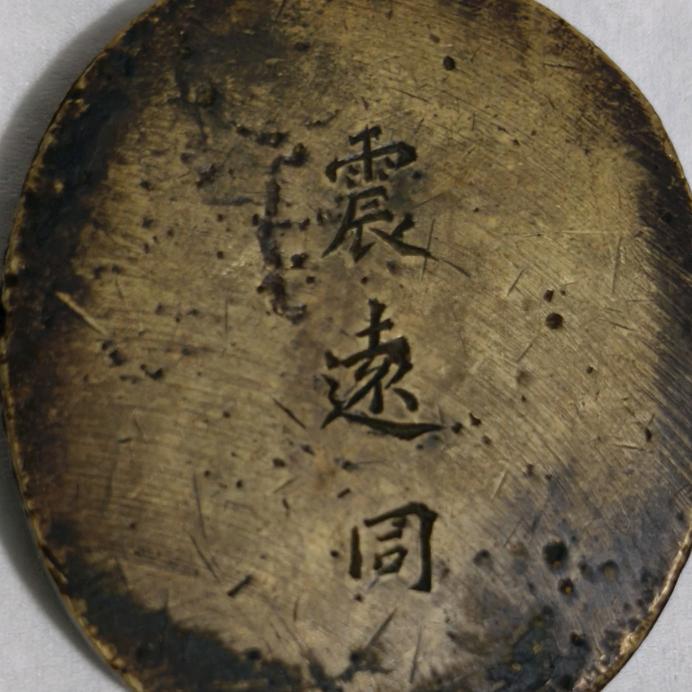 震遠同